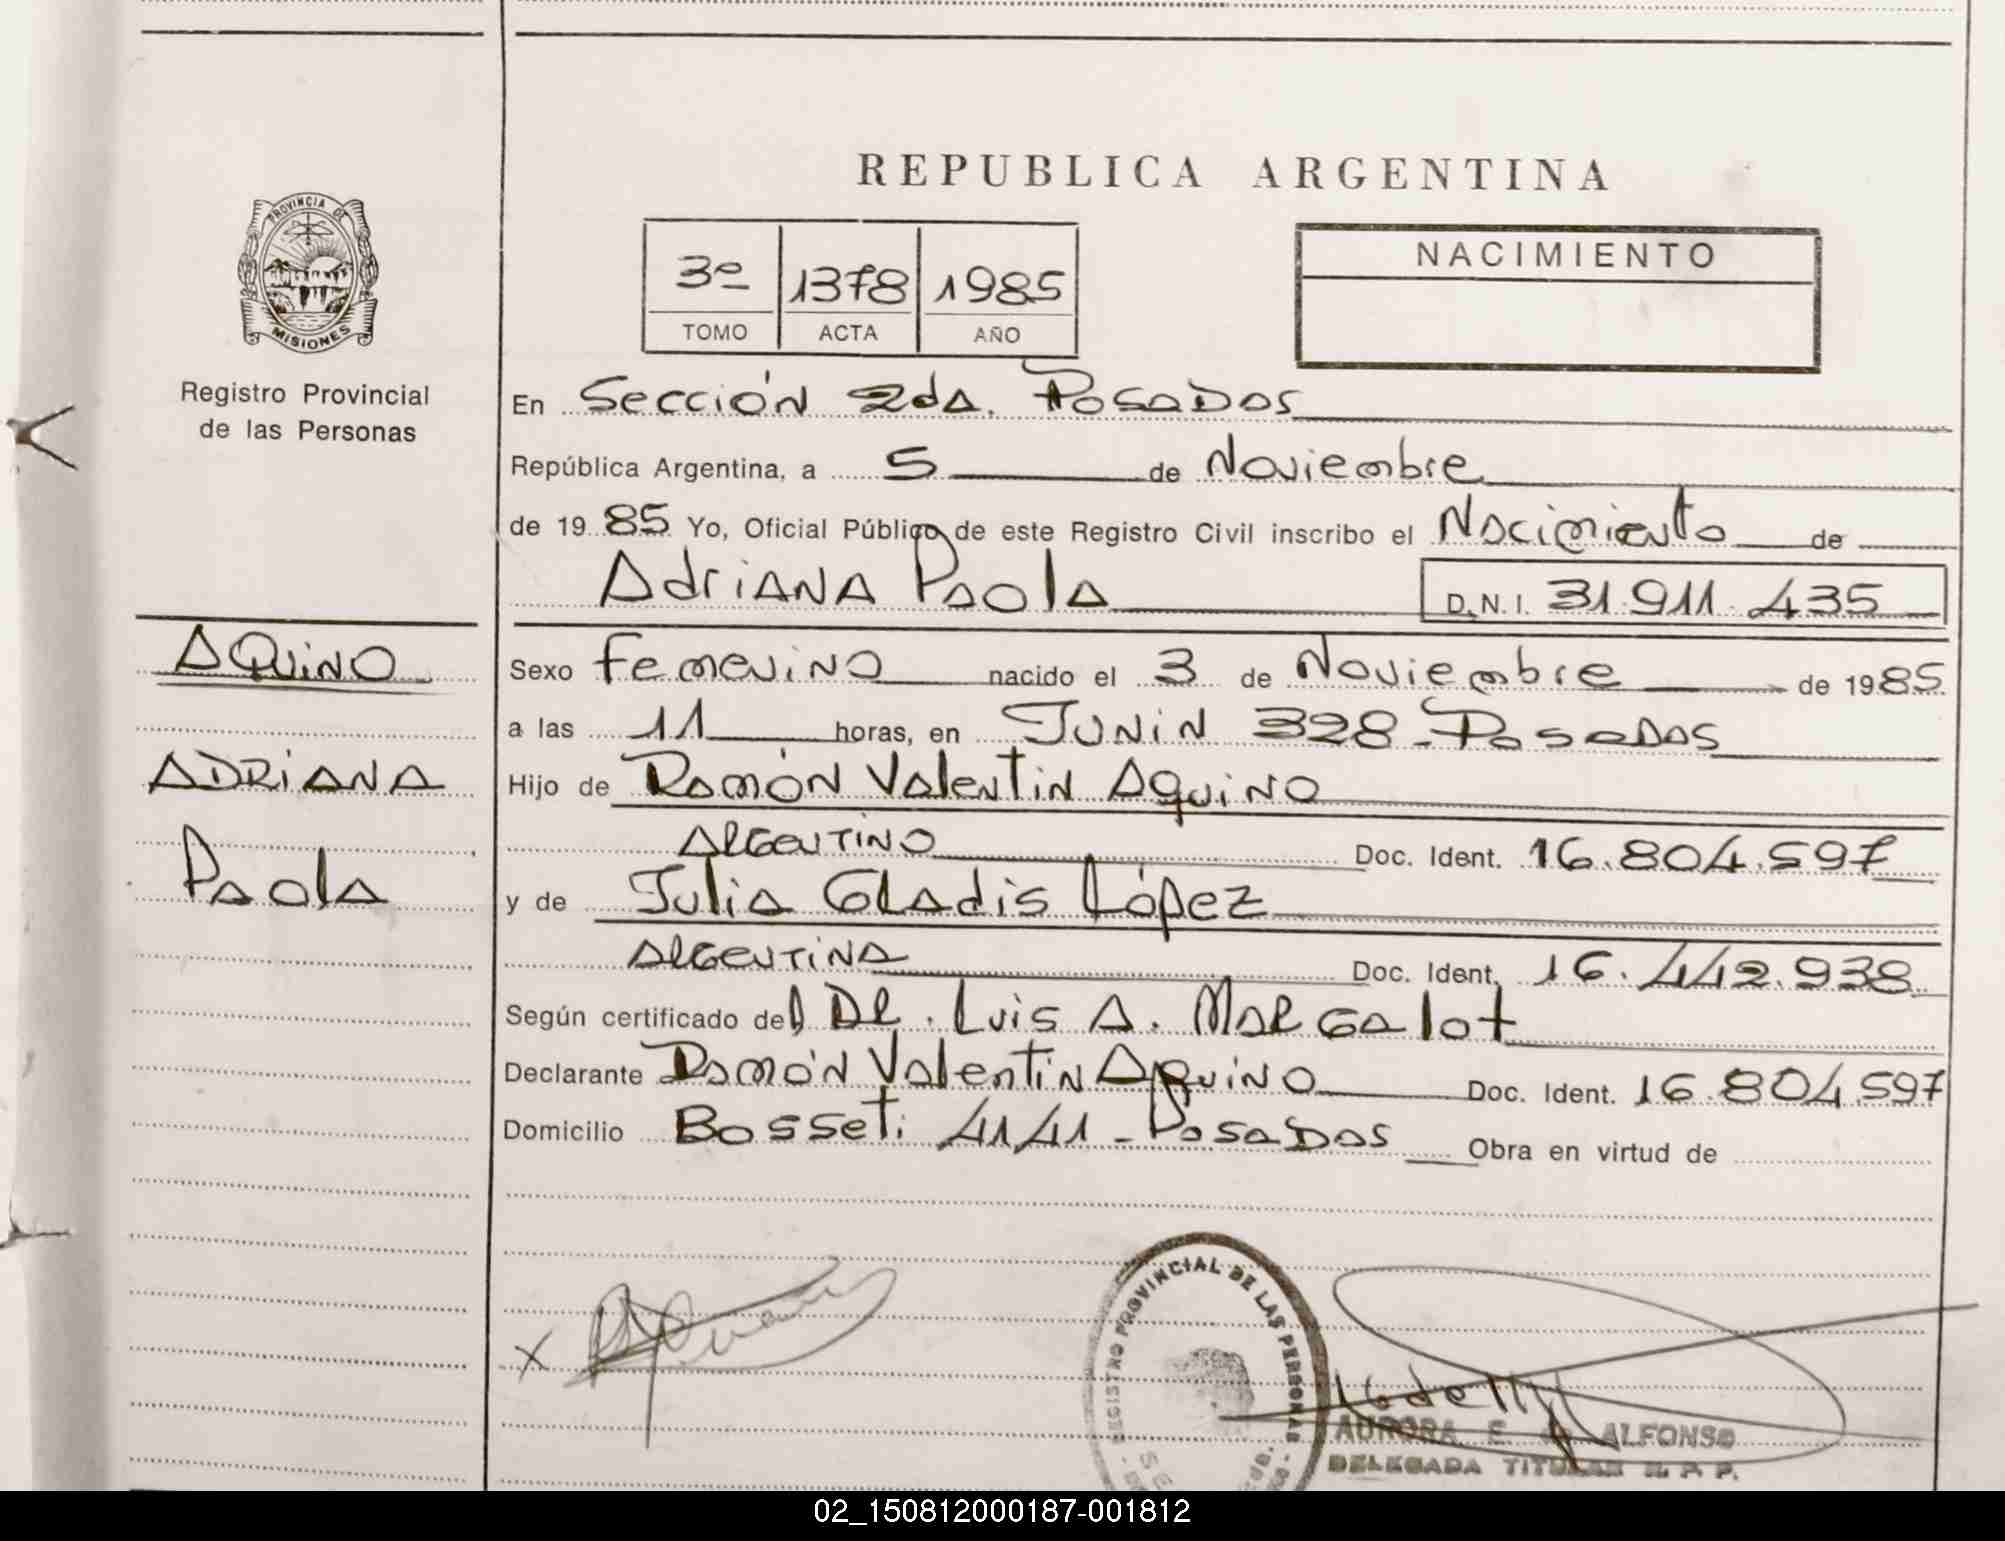 REPUBLICA ARGENTINA
PROVINCIA DE
MISIONES
Registro Provincial
de las Personas
3º 1378 1985
TOMO ACTA AÑO
NACIMIENTO
En Sección 2da. Posadas
República Argentina, a 5 de Noviembre
de 1985 Yo, Oficial Público de este Registro Civil inscribo el Nacimiento de
Adriana Paola D.N.I. 31.911.435
AQUINO
ADRIANA
Paola
Sexo Femenino nacido el 3 de Noviembre de 1985
a las 11 horas, en Junin 328 - Posadas
Hijo de Ramón Valentin Aquino
Argentino Doc. Ident. 16.804.597
y de Julia Gladis López
Argentina Doc. Ident. 16.442.938
Según certificado del Dr. Luis A. Margalot
Declarante Ramón Valentin Aquino Doc. Ident. 16.804.597
Domicilio Bosseti 4141 - Posadas Obra en virtud de
X
REGISTRO PROVINCIAL DE LAS PERSONAS
AURORA E. ALFONSO
DELEGADA TITULAR R. P. P.
02_150812000187-001812